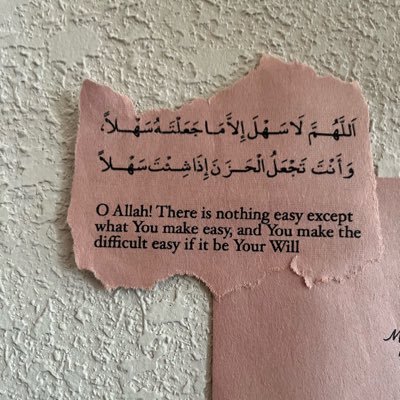 اَللَّهُمَّ لَا سَهْلَ إِلاَّ مَا جَعَلْتَهُ سَهْلاً،
وَأَنْتَ تَجْعَلُ الْحَزَنَ إِذَا شِئْتَ سَهْلاً
O Allah! There is nothing easy except
what You make easy, and You make the
difficult easy if it be Your Will